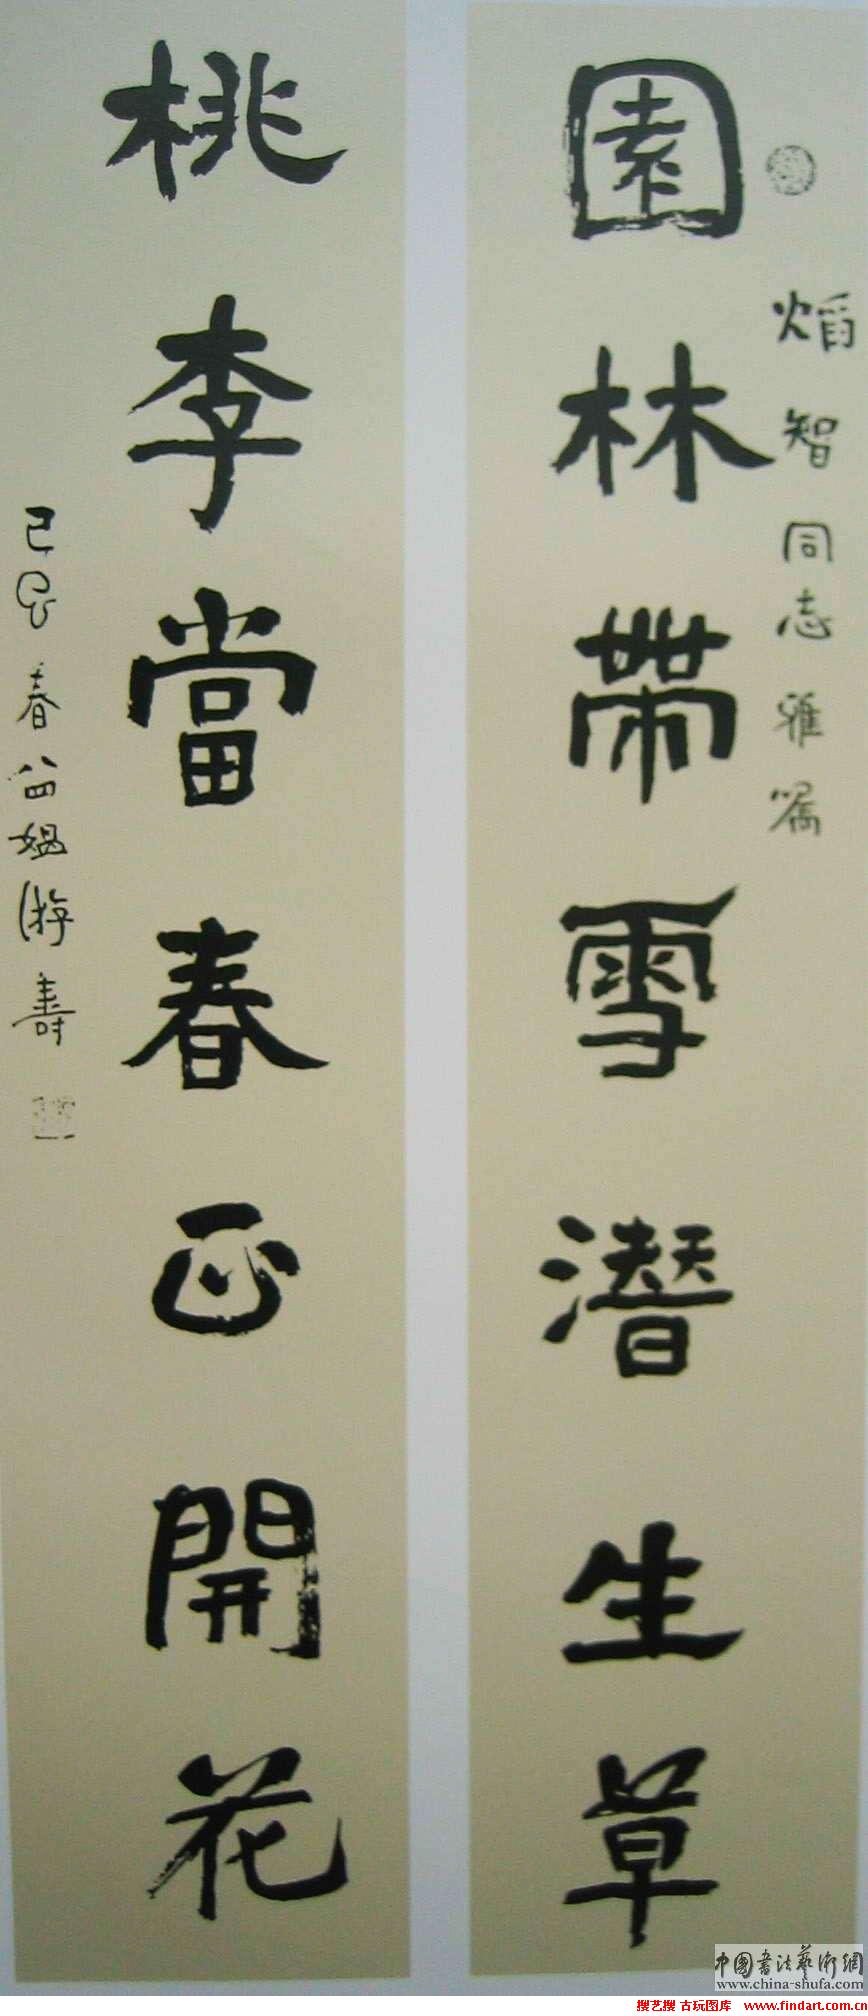 園林帶雪潛生草
焰智同志雅嘱
桃李當春正開花
己巳春八四媪游壽
中國書法藝術網
www.china-shufa.com
搜艺搜 古玩图库 www.findart.com.cn